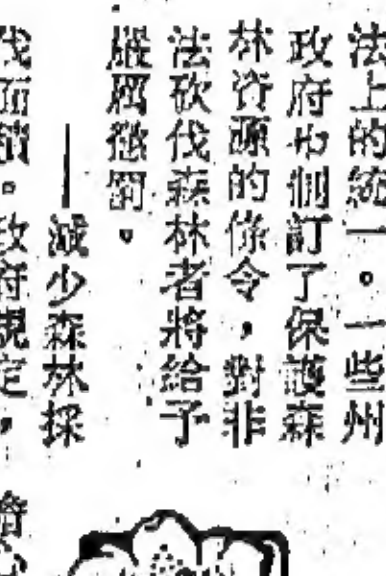 法上的統一。一些州
政府也制訂了保護森
林資源的條令，對非
法砍伐森林者將給予
嚴厲懲罰。
——減少森林採
伐面積。政府規定，